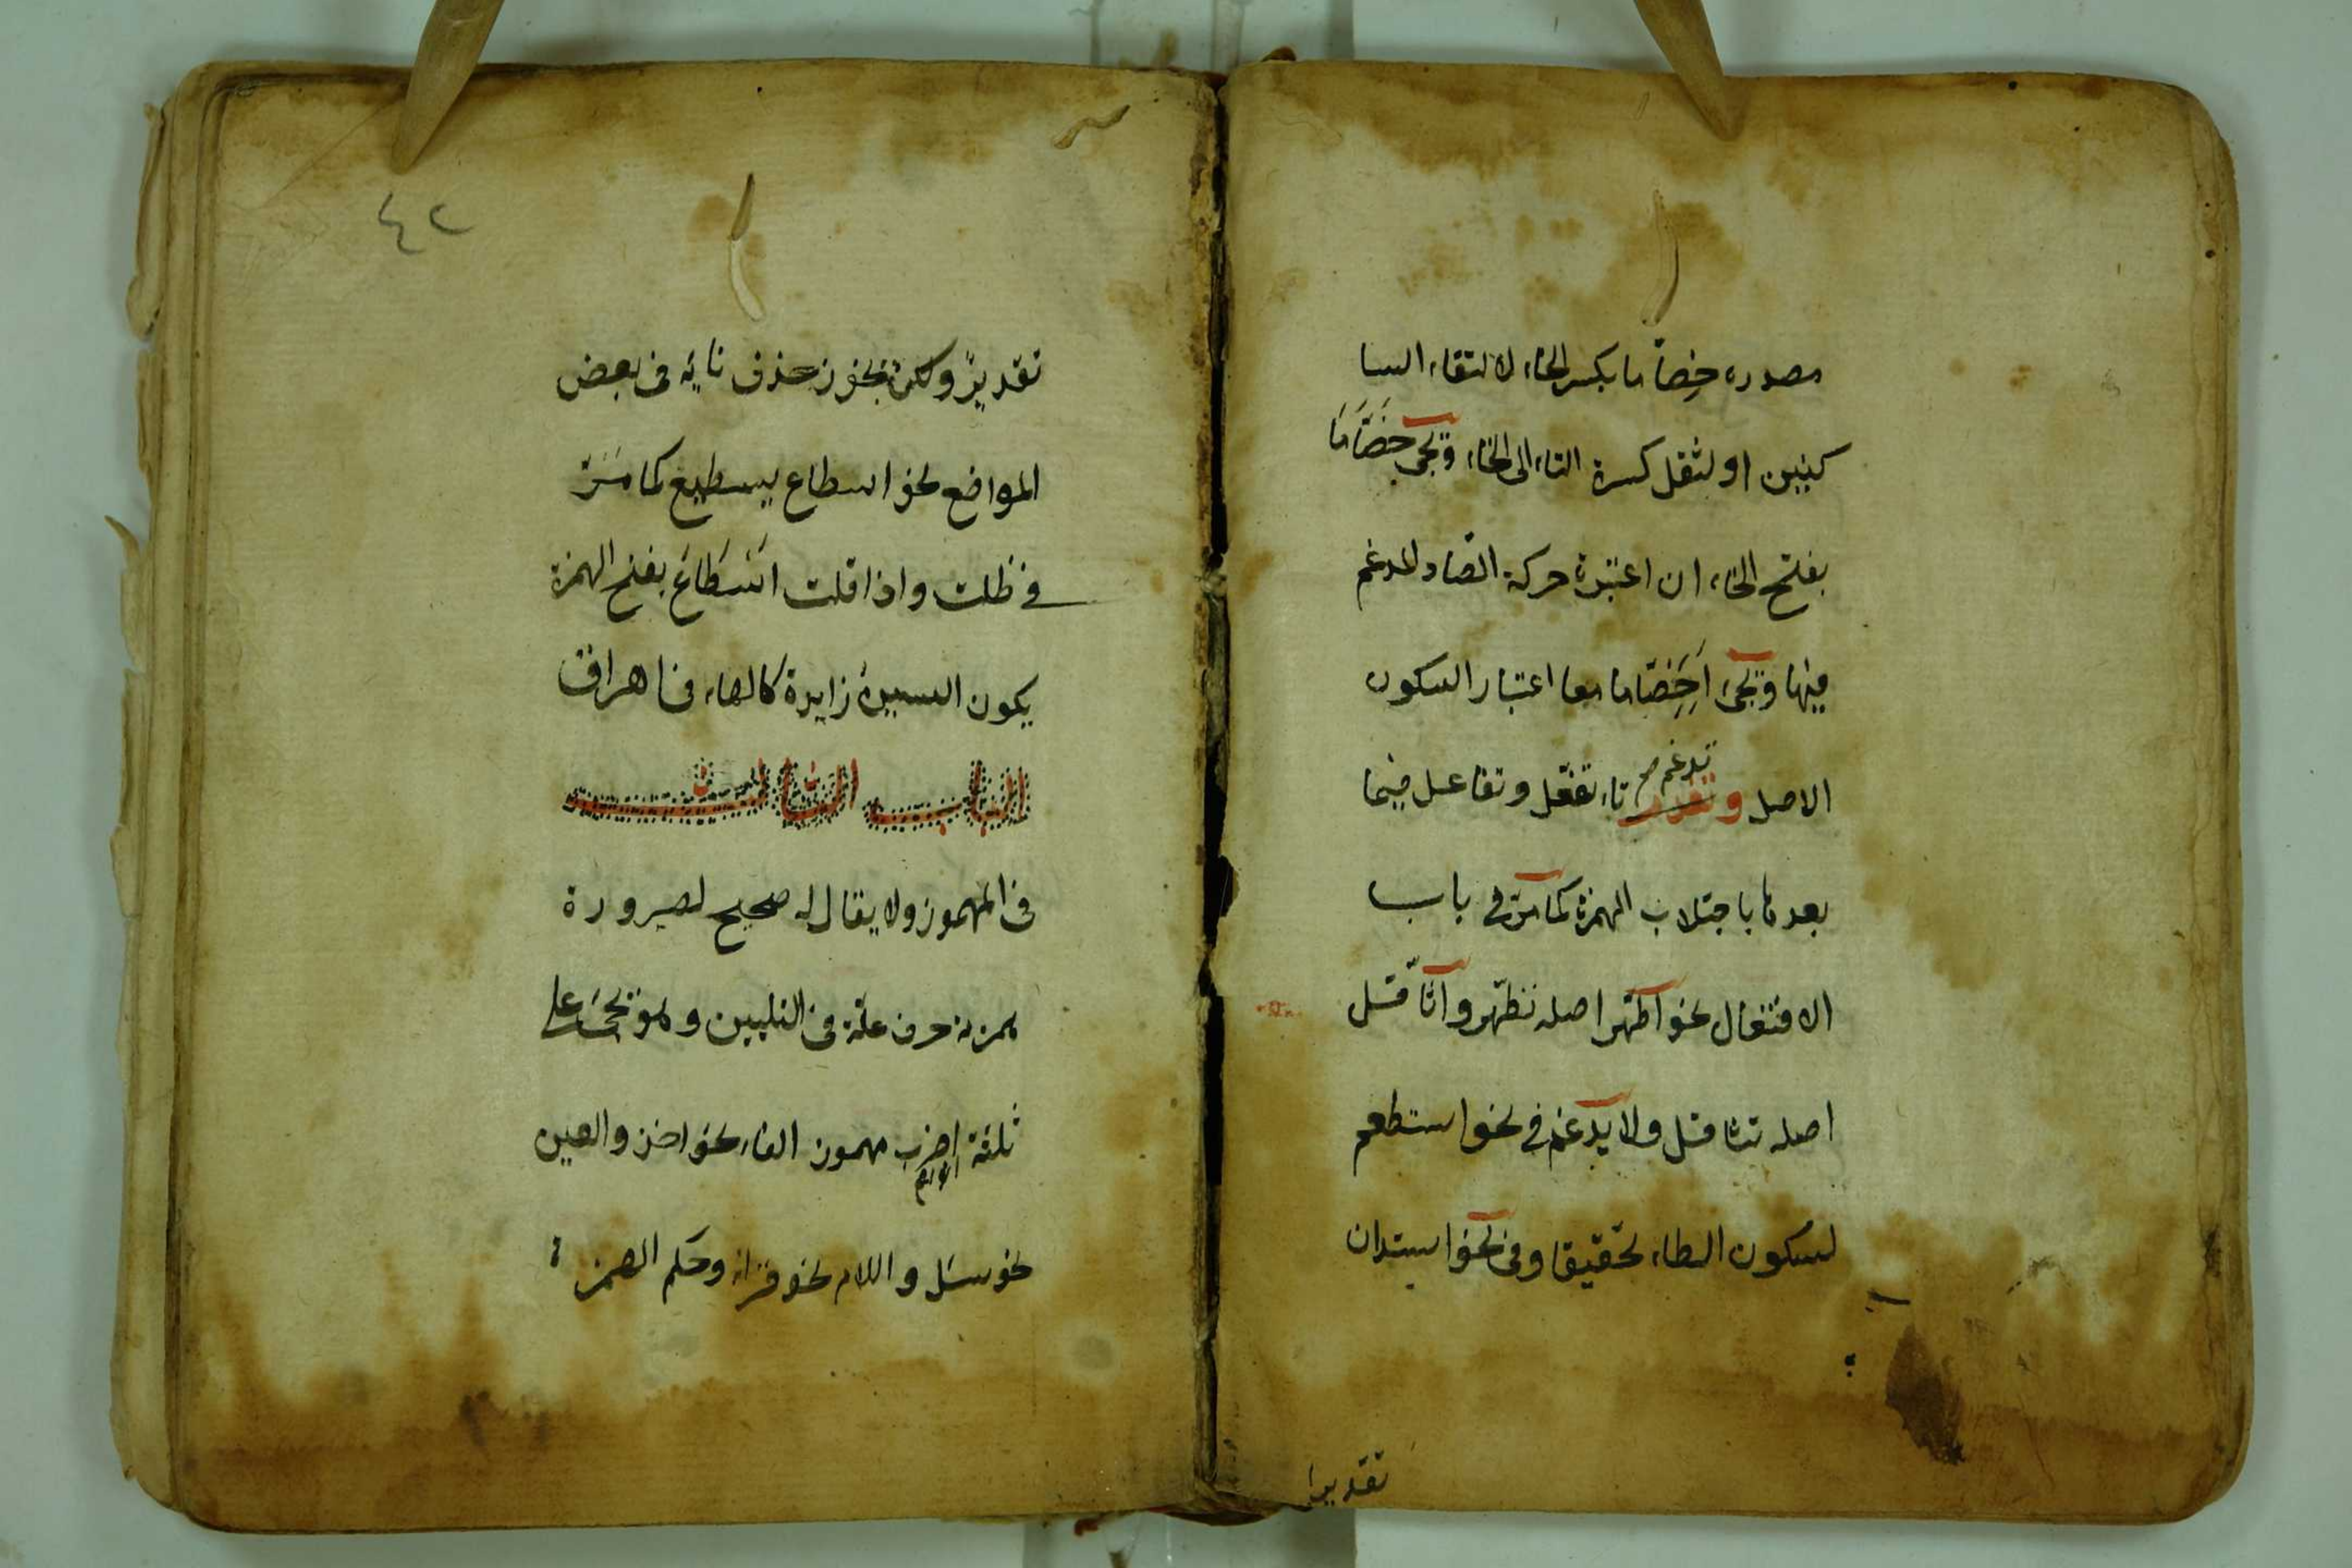 مصدره خِصّاما بكسر الخاء لالتقاء السا
كنين او لثقل كسرة التاء الى الخاء ويجئ خَصَّامَا
بفتح الخاء ان اعتبرة حركة الصّاد المدغم
فيها ويجئ اَخِصّاما معا اعتبار السكون
الاصل و تدغم صح تاء تفعّل وتفاعل فيما
بعدها باجتلاب الهمزة كما مرّ في باب
الافتعال نحو اطّهّر اصله تطهّر واثّاقل
اصله تثاقل ولا يدغم في نحو استطعم
لسكون الطاء تحقيقا وفى نحو استدان
تقديرا
٤٢
تقديرًا ولكن يجوز حذف تائه فى بعض
المواضع نحو اسطاع يسطيع كما مَرّ
في ظلت واذا قلت اَسْطَاعَ بفتح الهمزة
يكون السين زايدة كالهاء فى اهراق
الباب الثالث
فى المهموز ولا يقال له صحيح لصيرورة
همزته حرف علة فى التليين وهو يجئ على
ثلثة اضرب مهموز الفاء نحو اخذ والعين
نحو سئل واللام نحو قراء وحكم الهمزة